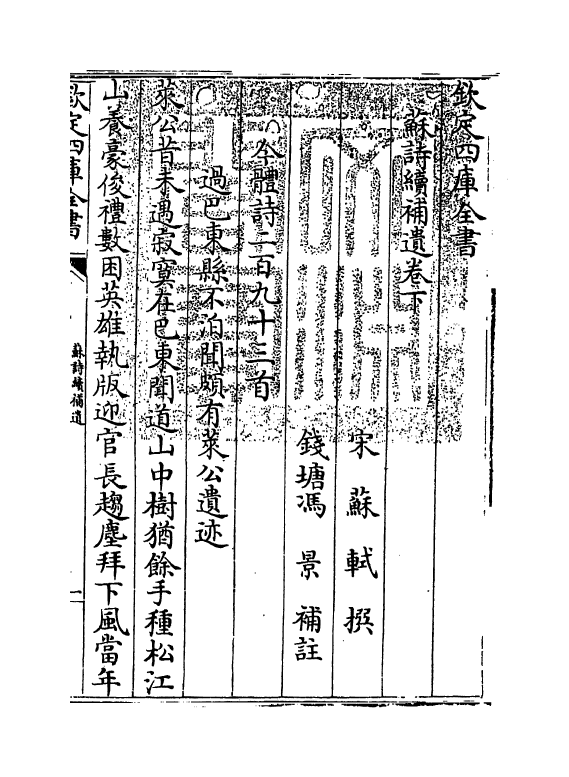 欽定四庫全書
蘇詩續補遺卷下
宋 蘇軾 撰
錢塘馮 景 補註
今體詩二百九十三首
過巴東縣不泊聞頗有萊公遺迹
萊公昔未遇寂寞在巴東聞道山中樹猶餘手種松江
山養豪俊禮數困英雄執版迎官長趨塵拜下風當年
欽定四庫全書
蘇詩續補遺
一